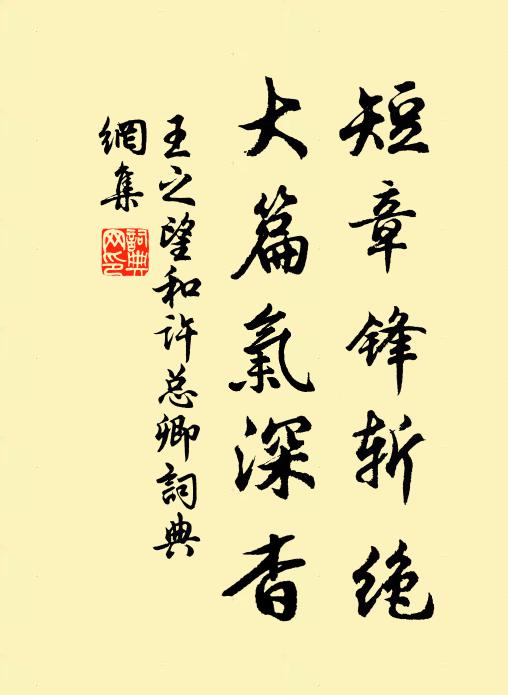 短章锋斩绝
大篇氣深杳
王之望和许总卿詞典
網集
詞典網印